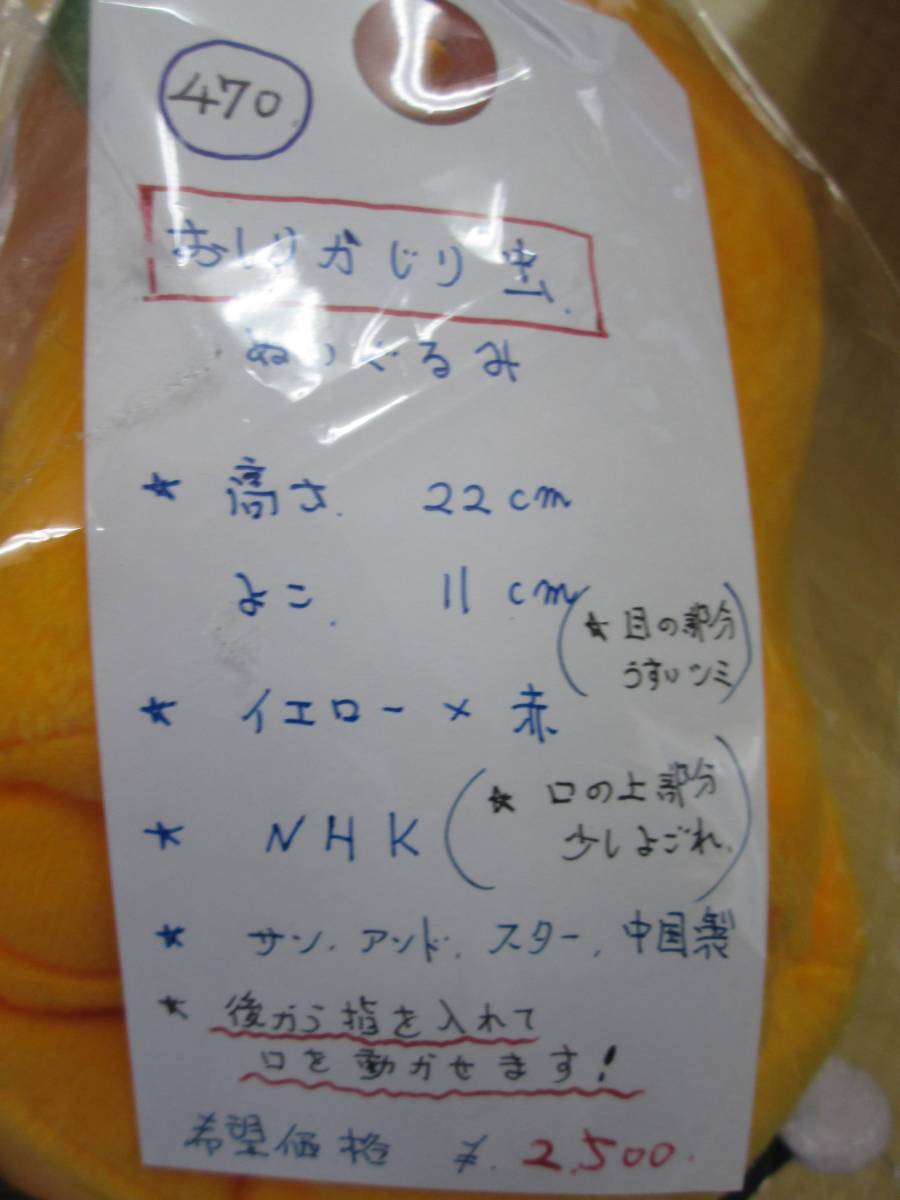 470
おしりかじり虫.
ぬいぐるみ
★ 高さ. 22cm
よこ. 11cm
(★ 目の部分
うすいシミ)
★ イエロー × 赤
★ NHK
(★ 口の上部分
少しよごれ.)
★ サン. アンド. スター. 中国製
★ 後から指を入れて
口を動かせます!
希望価格 ¥. 2.500.